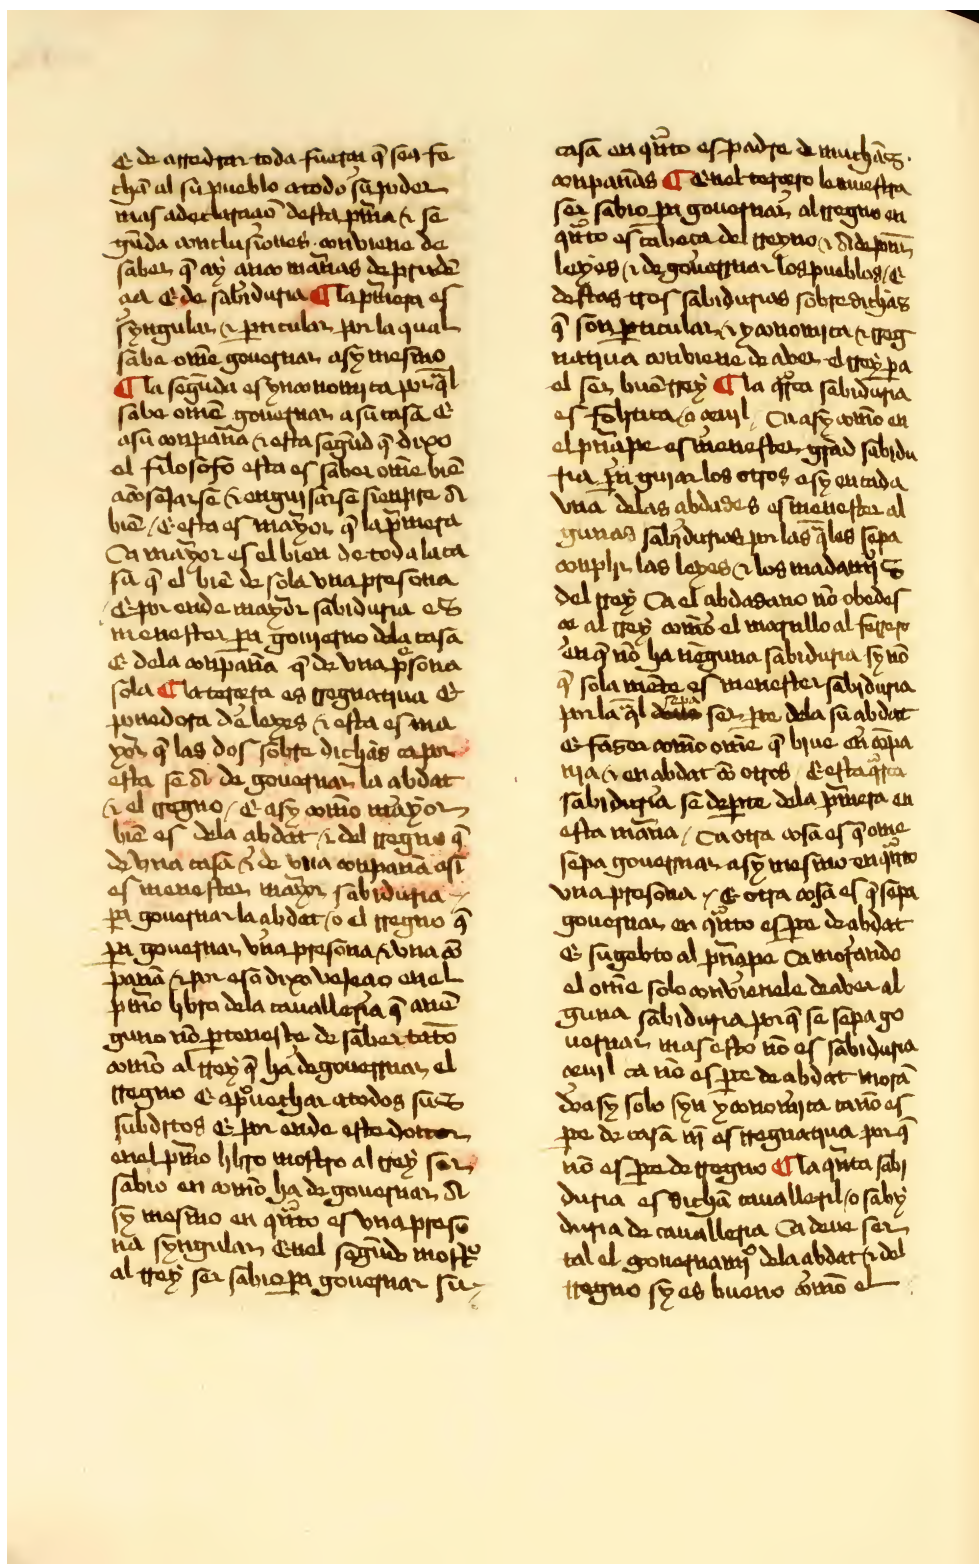 E de arredrar toda fuerça q̃ sea fe
cha al su pueblo a todo su poder
mas a declaraçiõ desta pͥma ⁊ se
gũda conclusiones conviene de
saber q̃ ay çinco mãras de prudẽ
çia E de sabiduria ¶ la pͥmera es
syngular ⁊ ꝑticular por la qual
sabe om̃e gouernar a sy mesmo
¶ la segũda es yconomica por q̃l
sabe om̃e gouernar a su casa E
a su conpañia ⁊ esta segũd q̃ dixo
el filosofo esta es saber om̃e biẽ
acõsejarse ⁊ enguisarse sienpre al
biẽ / E esta es mayor q̃ la pͥmera
Ca mayor es el bien de toda la ca
sa q̃ el biẽ de sola vna presona
E por ende mayor sabiduria es
menester ꝑa gouierno dela casa
E dela conpañia q̃ de vna ꝑsona
sola ¶ la terçera es rregnatiua E
ponedora de leyes ⁊ esta es ma
yor q̃ las dos sobre dichas ca por
esta se al de gouernar la çibdat
⁊ el rregno / E asy como mayor
biẽ es dela çibdat ⁊ del rregno q̃
de vna casa ⁊ de vna conpañia asi
es menester mayor sabiduria
ꝑa gouernar la çibdat / o el rregno q̃
ꝑa gouernar vna presona ⁊ vna cõ
pañia ⁊ por eso dixo vejeçio en el
pͥmo libro dela cavalleria q̃ a nĩ
guno nõ ꝑtenesçe de saber tãto
como al rrey q̃ ha de gouernar el
rregno E apͦuechar a todos sus
subditos E por ende este dottor
enel pͥmo libro mostro al rrey ser
sabio en como ha de gouernar al
sy mesmo en qͣnto es vna preso
na syngular E enel segũdo mostͦ
al rrey ser sabio ꝑa gouernar su
casa en qͣnto es padre de muchas
conpañas ¶ E enel terçero le muestra
ser sabio ꝑa gouernar al rregno en
qͣnto es cabeça del rreyno ⁊ al de poner
leyes / ⁊ de gouernar los pueblos / E
destas tres sabidurias sobre dichas
q̃ son ꝑticular ⁊ yconomica ⁊ rreg
natiua conviene de aver el rrey ꝑa
el ser buẽ rrey ¶ la qͣrta sabiduria
es Politica / o çeuil / Ca asy como en
el pͥnçipe es menester grãd sabidu
ria ꝑa guiar los otros asy en cada
vna delas çibdades es menester al
gunas sabidurias por las q̃les sepa
conplir las leyes ⁊ los mãdamiẽtos
del rrey Ca el çibdadano nõ obedes
çe al rrey como el martillo al ferrero
en q̃ nõ ha nenguna sabiduria sy nõ
q̃ sola mẽte es menester sabiduria
por la q̃l sepa ser ꝑte dela su çibdat
E fazer como om̃e q̃ biue en cõpa
ñia ⁊ en çibdat cõ otros / E esta qͣrta
sabiduria se deꝑte dela pͥmera en
esta mãra / Ca otra cosa es q̃ om̃e
sepa gouernar a sy mesmo en qͣnto
vna presona / E otra cosa es q̃ sepa
gouernar en qͣnto es ꝑte de çibdat
E sugebto al pͥnçipe Ca morando
el om̃e solo convienele de aber al
guna sabiduria por q̃ se sepa go
uernar mas esto nõ es sabiduria
çeuil ca nõ es ꝑte de çibdat morã
do asy solo syn yconomica ca nõ es
ꝑte de casa nĩ es rregnatiua por q̃
nõ es ꝑte de rregno ¶ la qͥnta sabi
duria es dicha caualleril / o saby
duria de caualleria Ca deue ser
tal el gouernamͥo dela çibdat ⁊ del
rregno sy es bueno como el